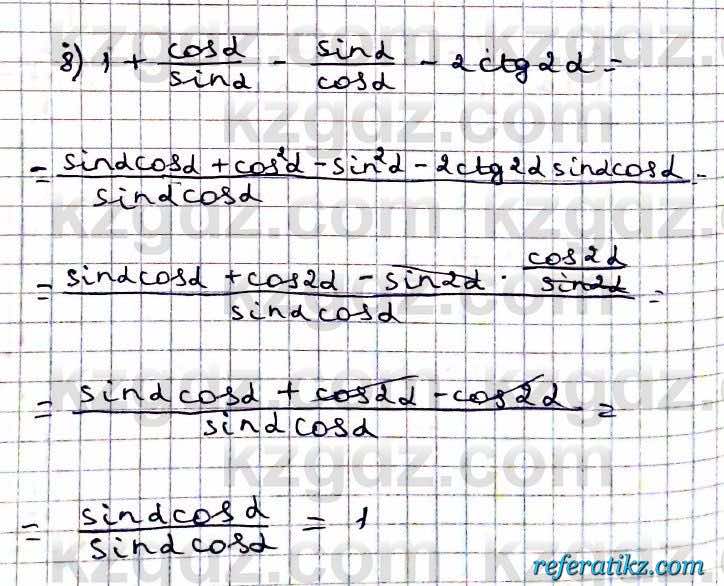 з) 1 + cosα/sinα - sinα/cosα - 2ctg2α =
= (sinαcosα + cos²α - sin²α - 2ctg2α sinαcosα)/(sinαcosα) =
= (sinαcosα + cos2α - sin2α · cos2α/sin2α)/(sinαcosα) =
= (sinαcosα + cos2α - cos2α)/(sinαcosα) =
= sinαcosα/sinαcosα = 1
kzgdz.com
referatikz.com